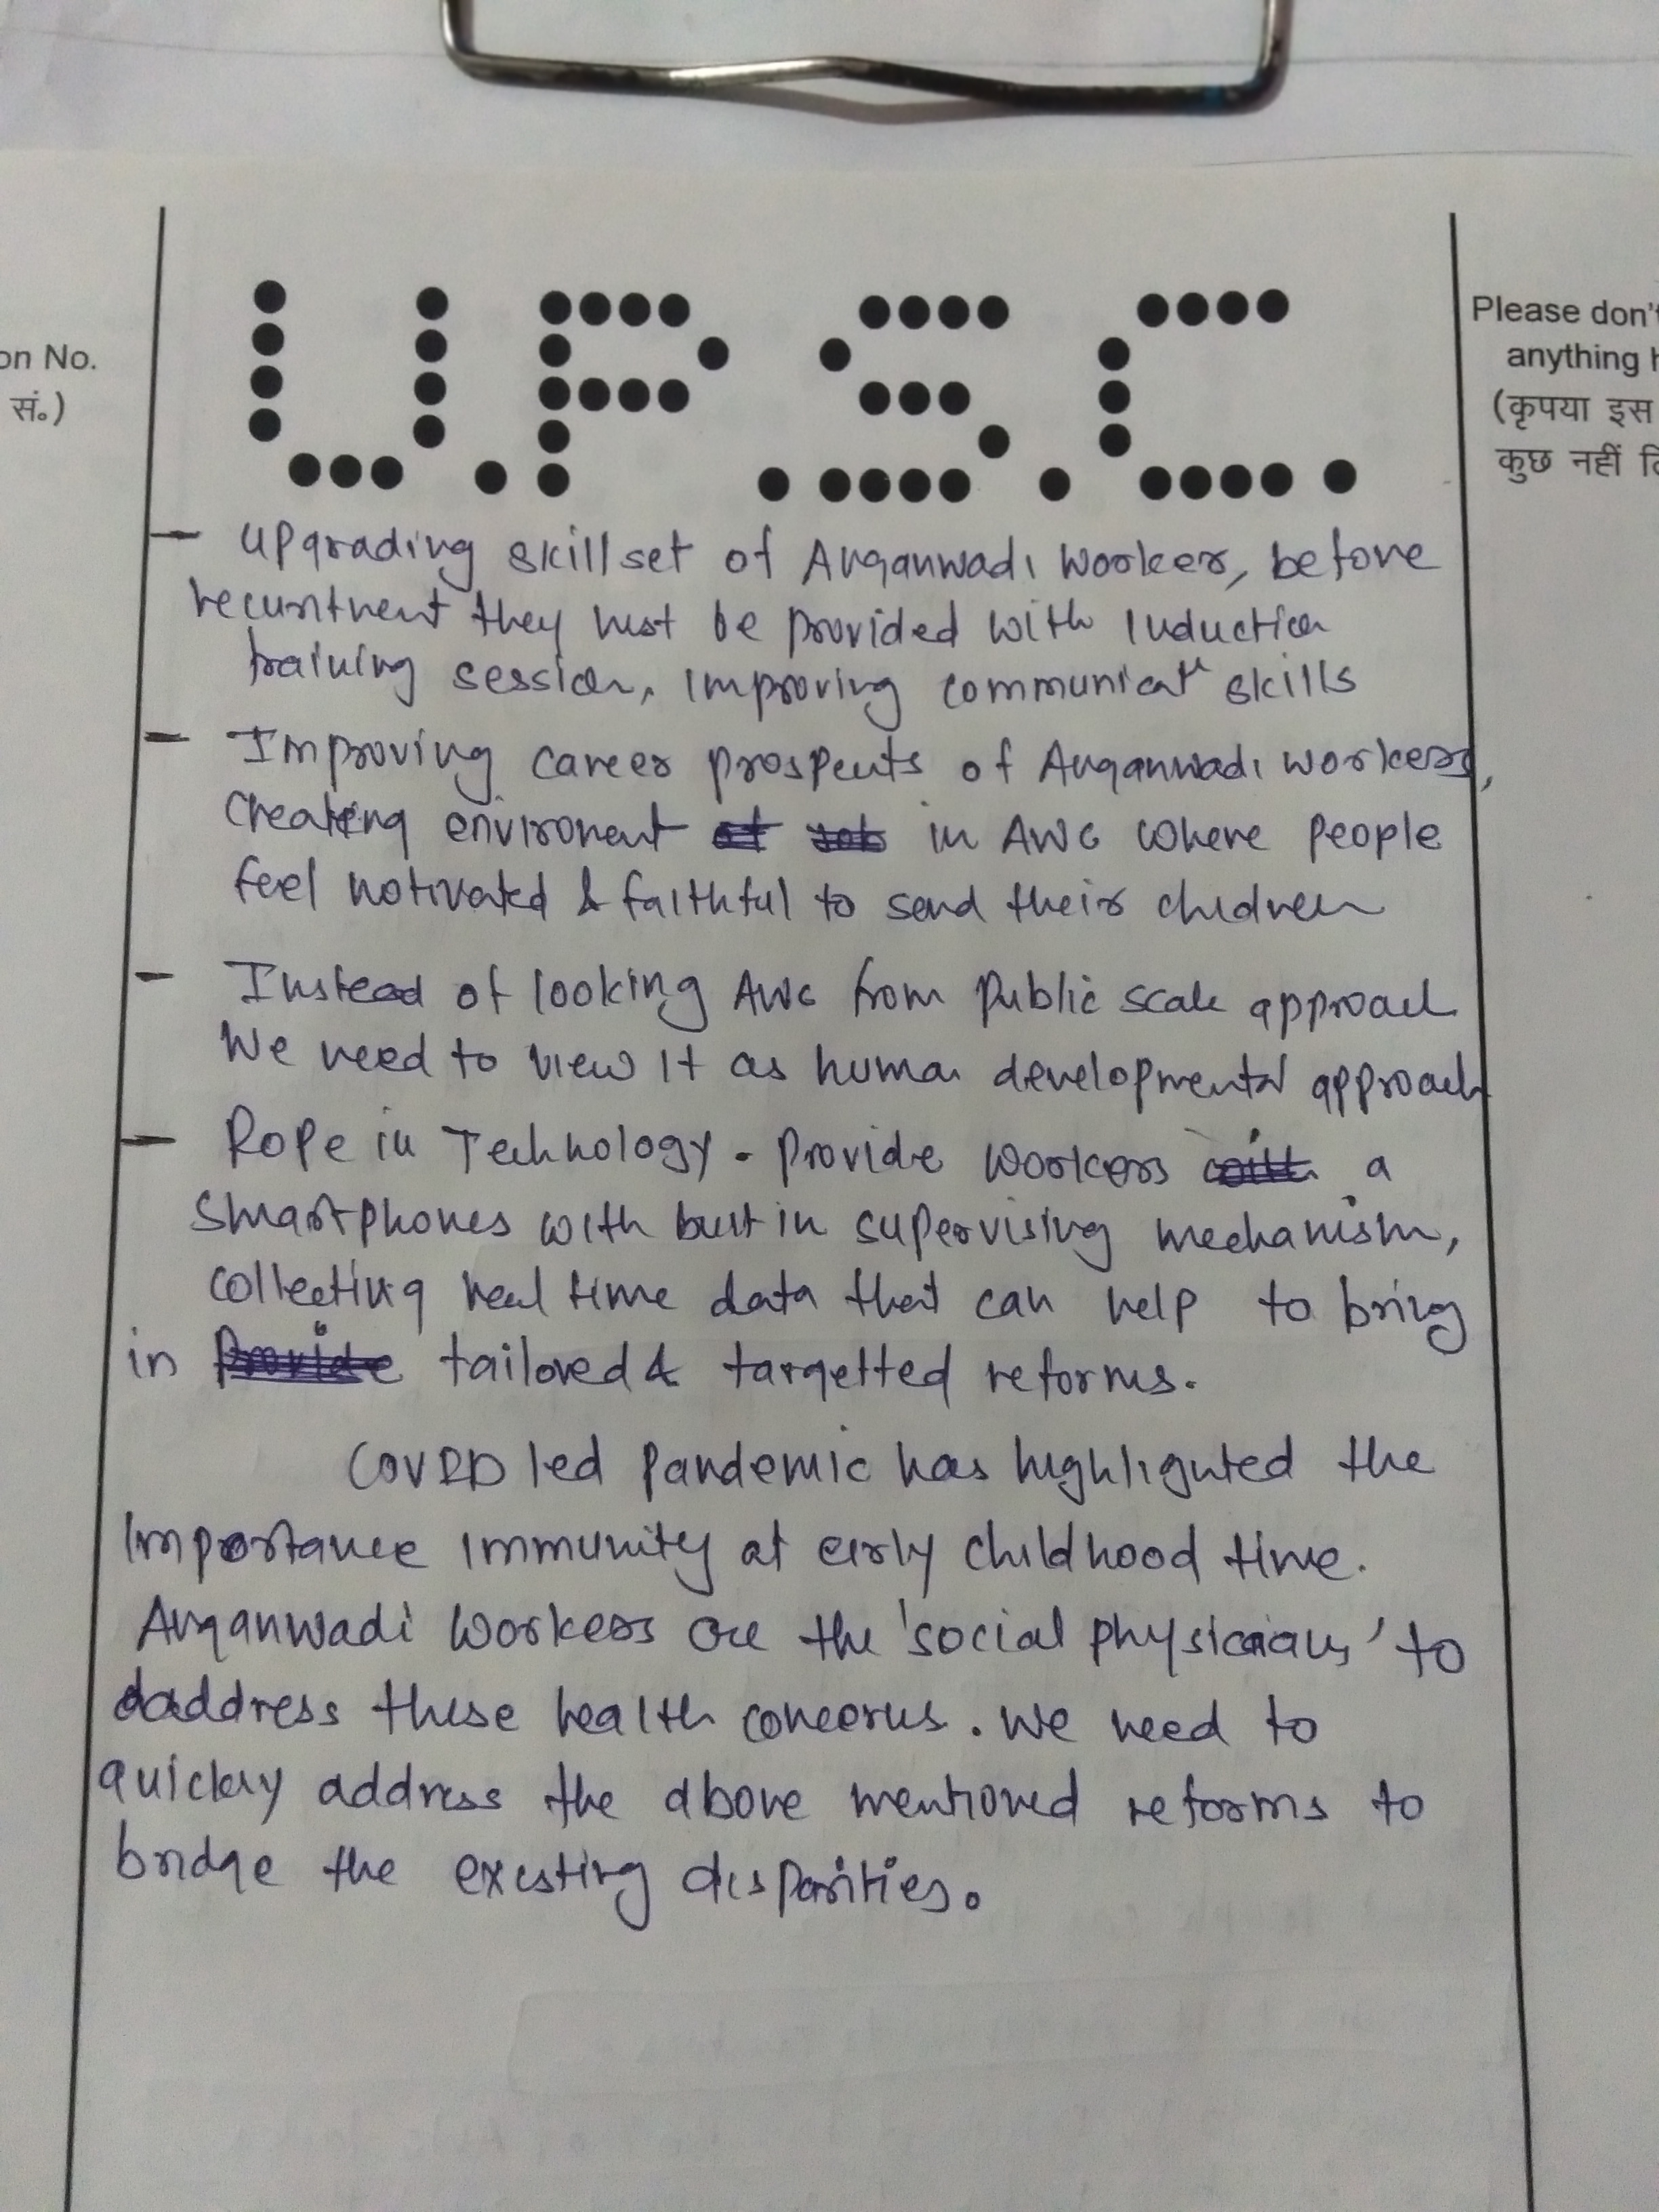 on No.
सं॰)
U.P.S.C.
Please don't
anything h
(कृपया इस
कुछ नहीं लि
- Upgrading skillset of Anganwadi Worker, before
recuritment they must be provided with Induction
training session, improving communicatn skills
- Improving career prospects of Anganwadi workers,
Creating enviroment in AWC where people
feel motivated & faithful to send their children
- Instead of looking AWC from Public scale approach
We need to view it as human developmental approach
- Rope in Technology. Provide workers a
Smartphones with built in supervising mechanism,
collecting real time data that can help to bring
in tailored & targetted reforms.
COVID led Pandemic has highlighted the
Importance immunity at early childhood time.
Anganwadi Workers are the 'social physicians' to
address these health concerns. We need to
quickly address the above mentioned reforms to
bridge the existing disparities.